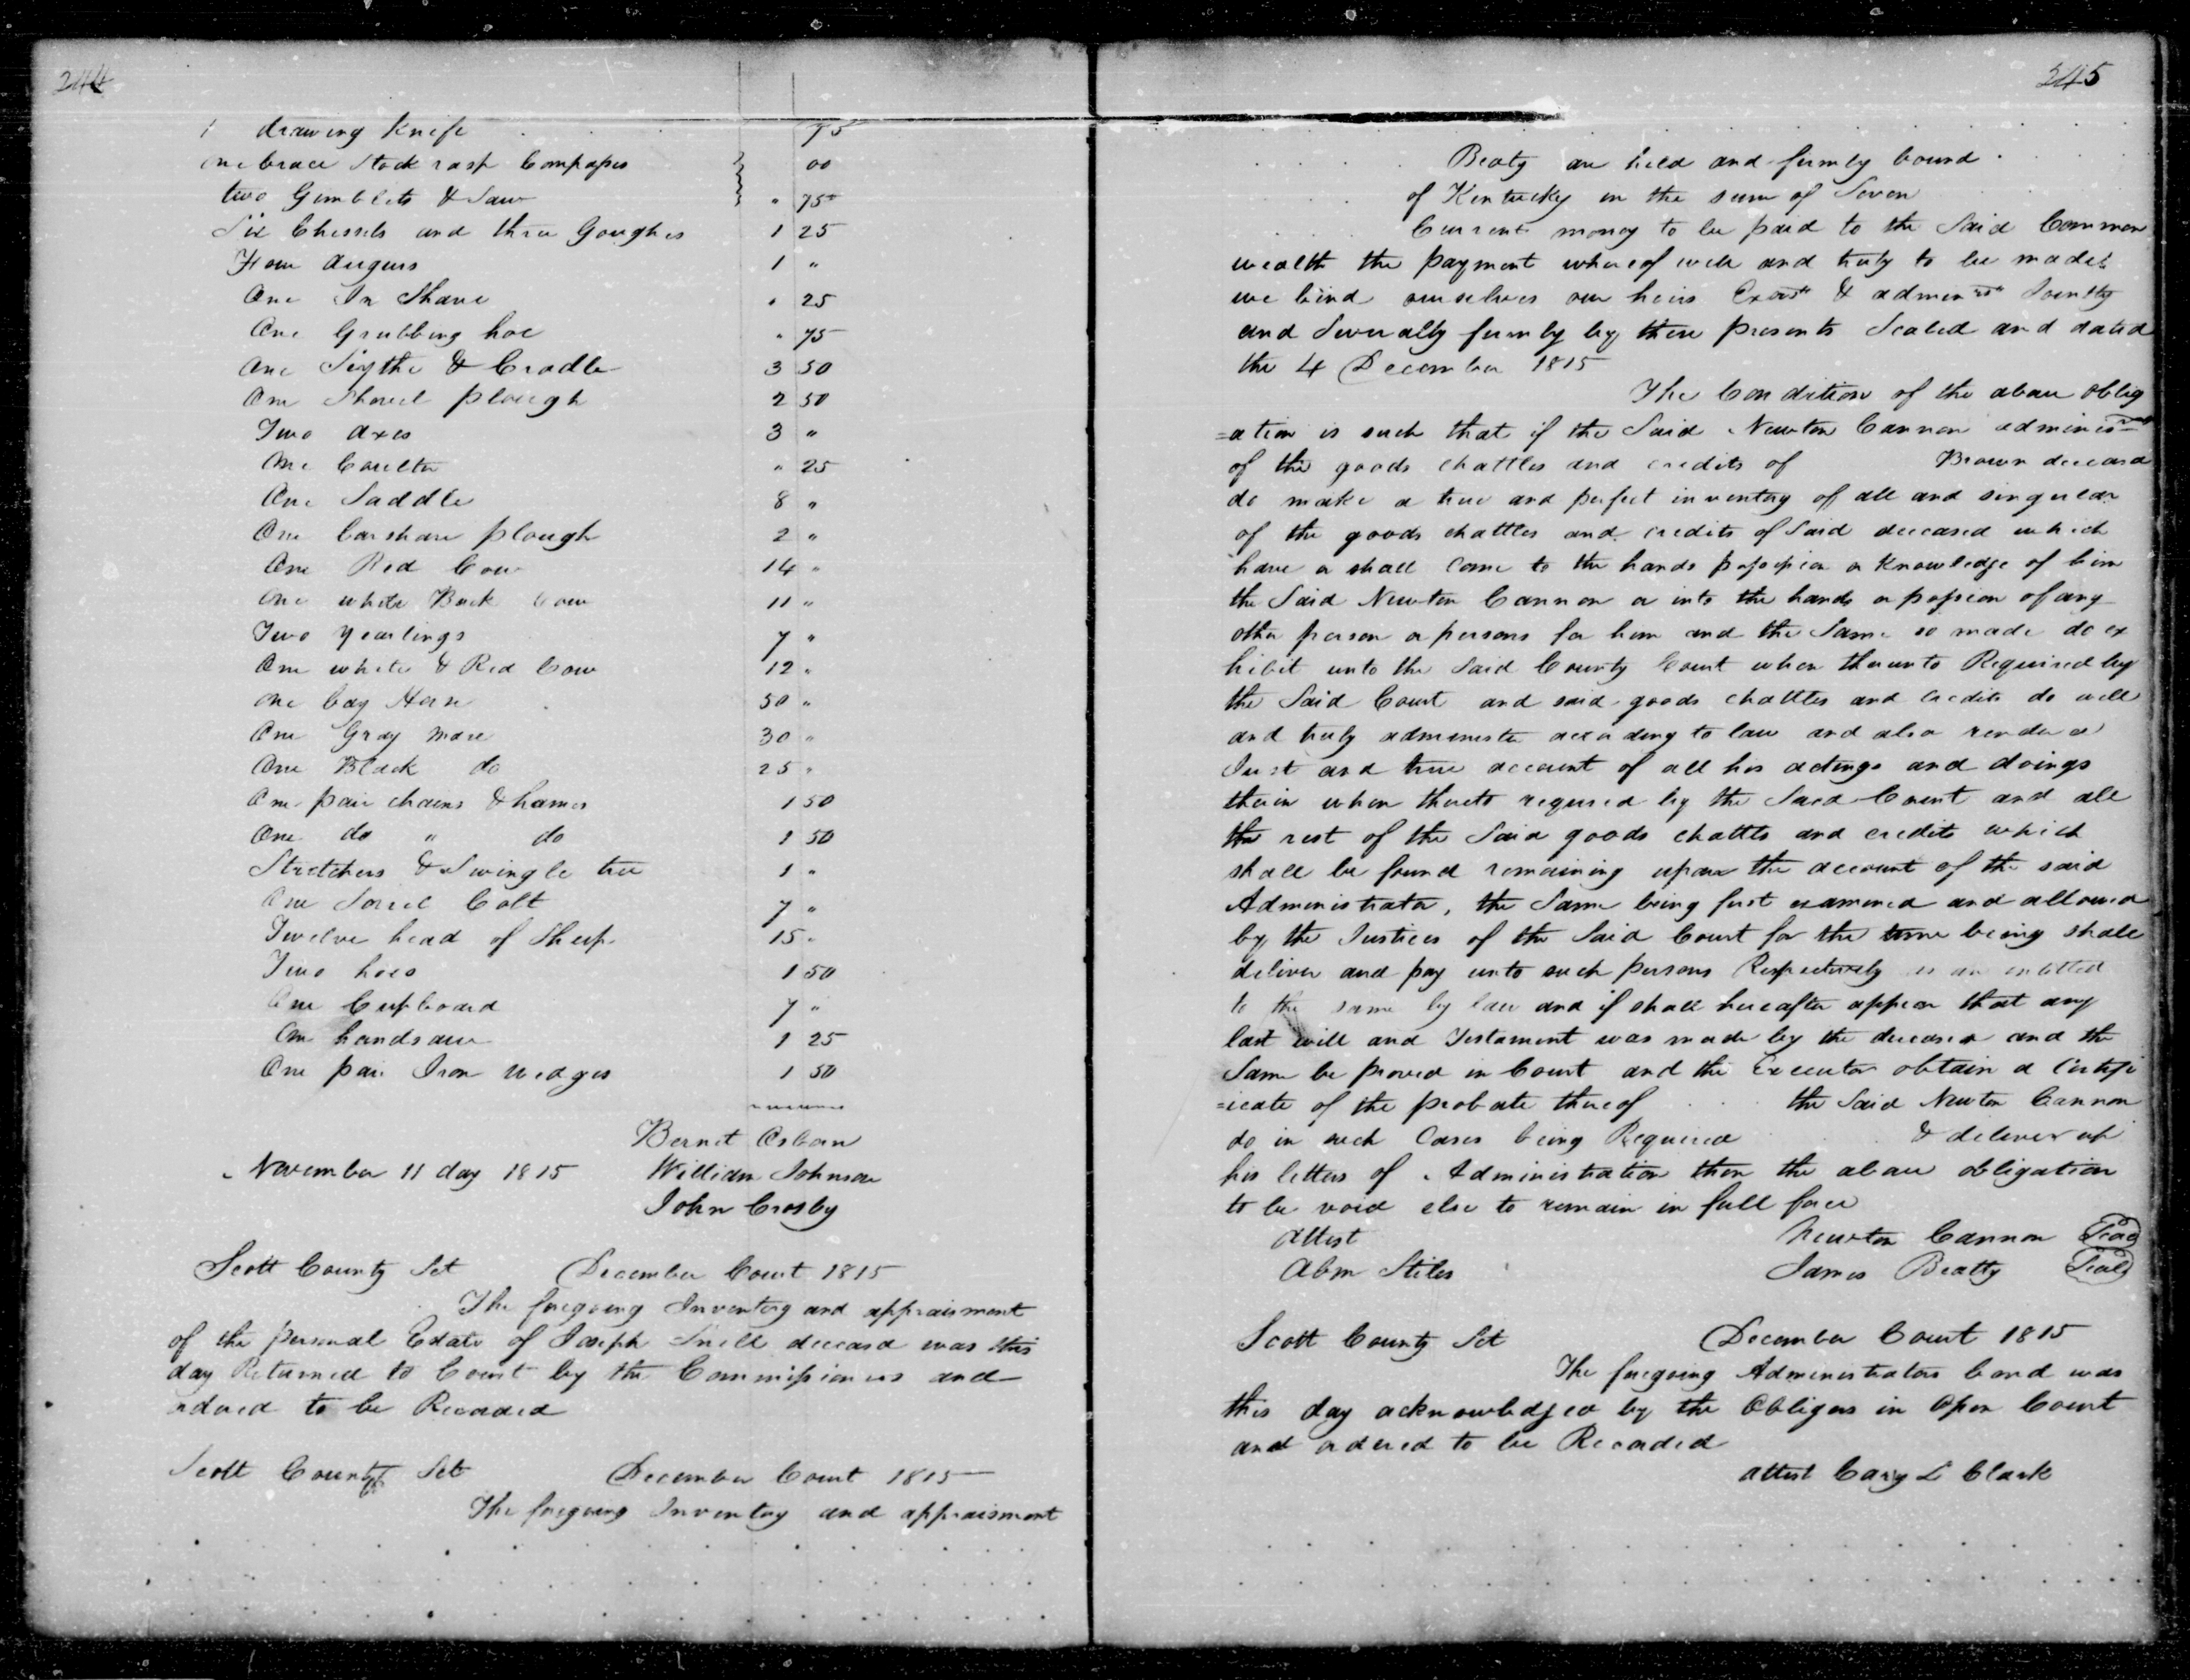 244
1 drawing Knife 75
one brace Stock rasp Compasses 00
two Gimblets & Saw " 75
Six Chessels and three Goughes 1 25
Four augurs 1 "
One In Shave " 25
One Grubbing hoe " 75
One Sythe & Cradle 3 50
One Shovel plough 2 50
Two axes 3 "
One Coulter " 25
One Saddle 8 "
One barshare plough 2 "
One Red Cow 14 "
One white Back Cow 11 "
Two yearlings 7 "
One white & Red Cow 12 "
one bay Horse 50 "
One Gray mare 30 "
One Black do 25 "
One pair chains & hames 1 50
One do " do 1 50
Stretchers & Swingle tree 1 "
One Sorrel Colt 7 "
Twelve head of Sheep 15 "
Two hoes 1 50
One Cupboard 7 "
One handsaw 1 25
One pair Iron wedges 1 50
Bernet Osborn
November 11 day 1815 William Johnson
John Crosby
Scott County Sct December Court 1815
The foregoing Inventory and appraisment
of the personal Estate of Joseph Snell deceasd was this
day Returned to Court by the Commissioners and
ordered to be Recorded
Scott County Sct December Court 1815
The foregoing Inventory and appraisment
245
Beaty are held and firmly bound
of Kentucky in the sum of Seven
Current money to be paid to the Said Common
wealth the payment whereof well and truly to be made
we bind ourselves our heirs Exors & adminrs Jointly
and Severally firmly by these presents Sealed and dated
the 4 December 1815
The Condition of the above oblig
=ation is such that if the Said Newton Cannon adminis
of the goods chattles and credits of Brown deceasd
do make a true and perfect inventory of all and singular
of the goods chattles and credits of Said deceased which
have or shall Come to the hands possession or Knowledge of him
the Said Newton Cannon or into the hands or possion of any
other person or persons for him and the Same so made do ex
hibit unto the Said County Court when thereunto Required by
the Said Court and said goods chattles and credits do well
and truly administer according to law and also render a
Just and true account of all his actings and doings
therein when thereto required by the Said Court and all
the rest of the Said goods chattls and credits which
shall be found remaining upon the account of the said
Administrator, the Same being first examined and allowed
by the Justices of the Said Court for the time being shall
deliver and pay unto such persons Respectively as are intitled
to the same by law and if shall hereafter appear that any
last will and Testament was made by the deceased and the
Same be proved in Court and the Executor obtain a Certifi
=icate of the probate thereof the Said Newton Cannon
do in such Cases being Required & deliver up
his letters of Administration then the above obligation
to be void else to remain in full force
Attest Newton Cannon Seal
Abm Stiles James Beatty Seal
Scott County Sct December Court 1815
The foregoing Administrators bond was
this day acknowledged by the Obligors in Open Court
and ordered to be Recorded
attest Cary L Clark